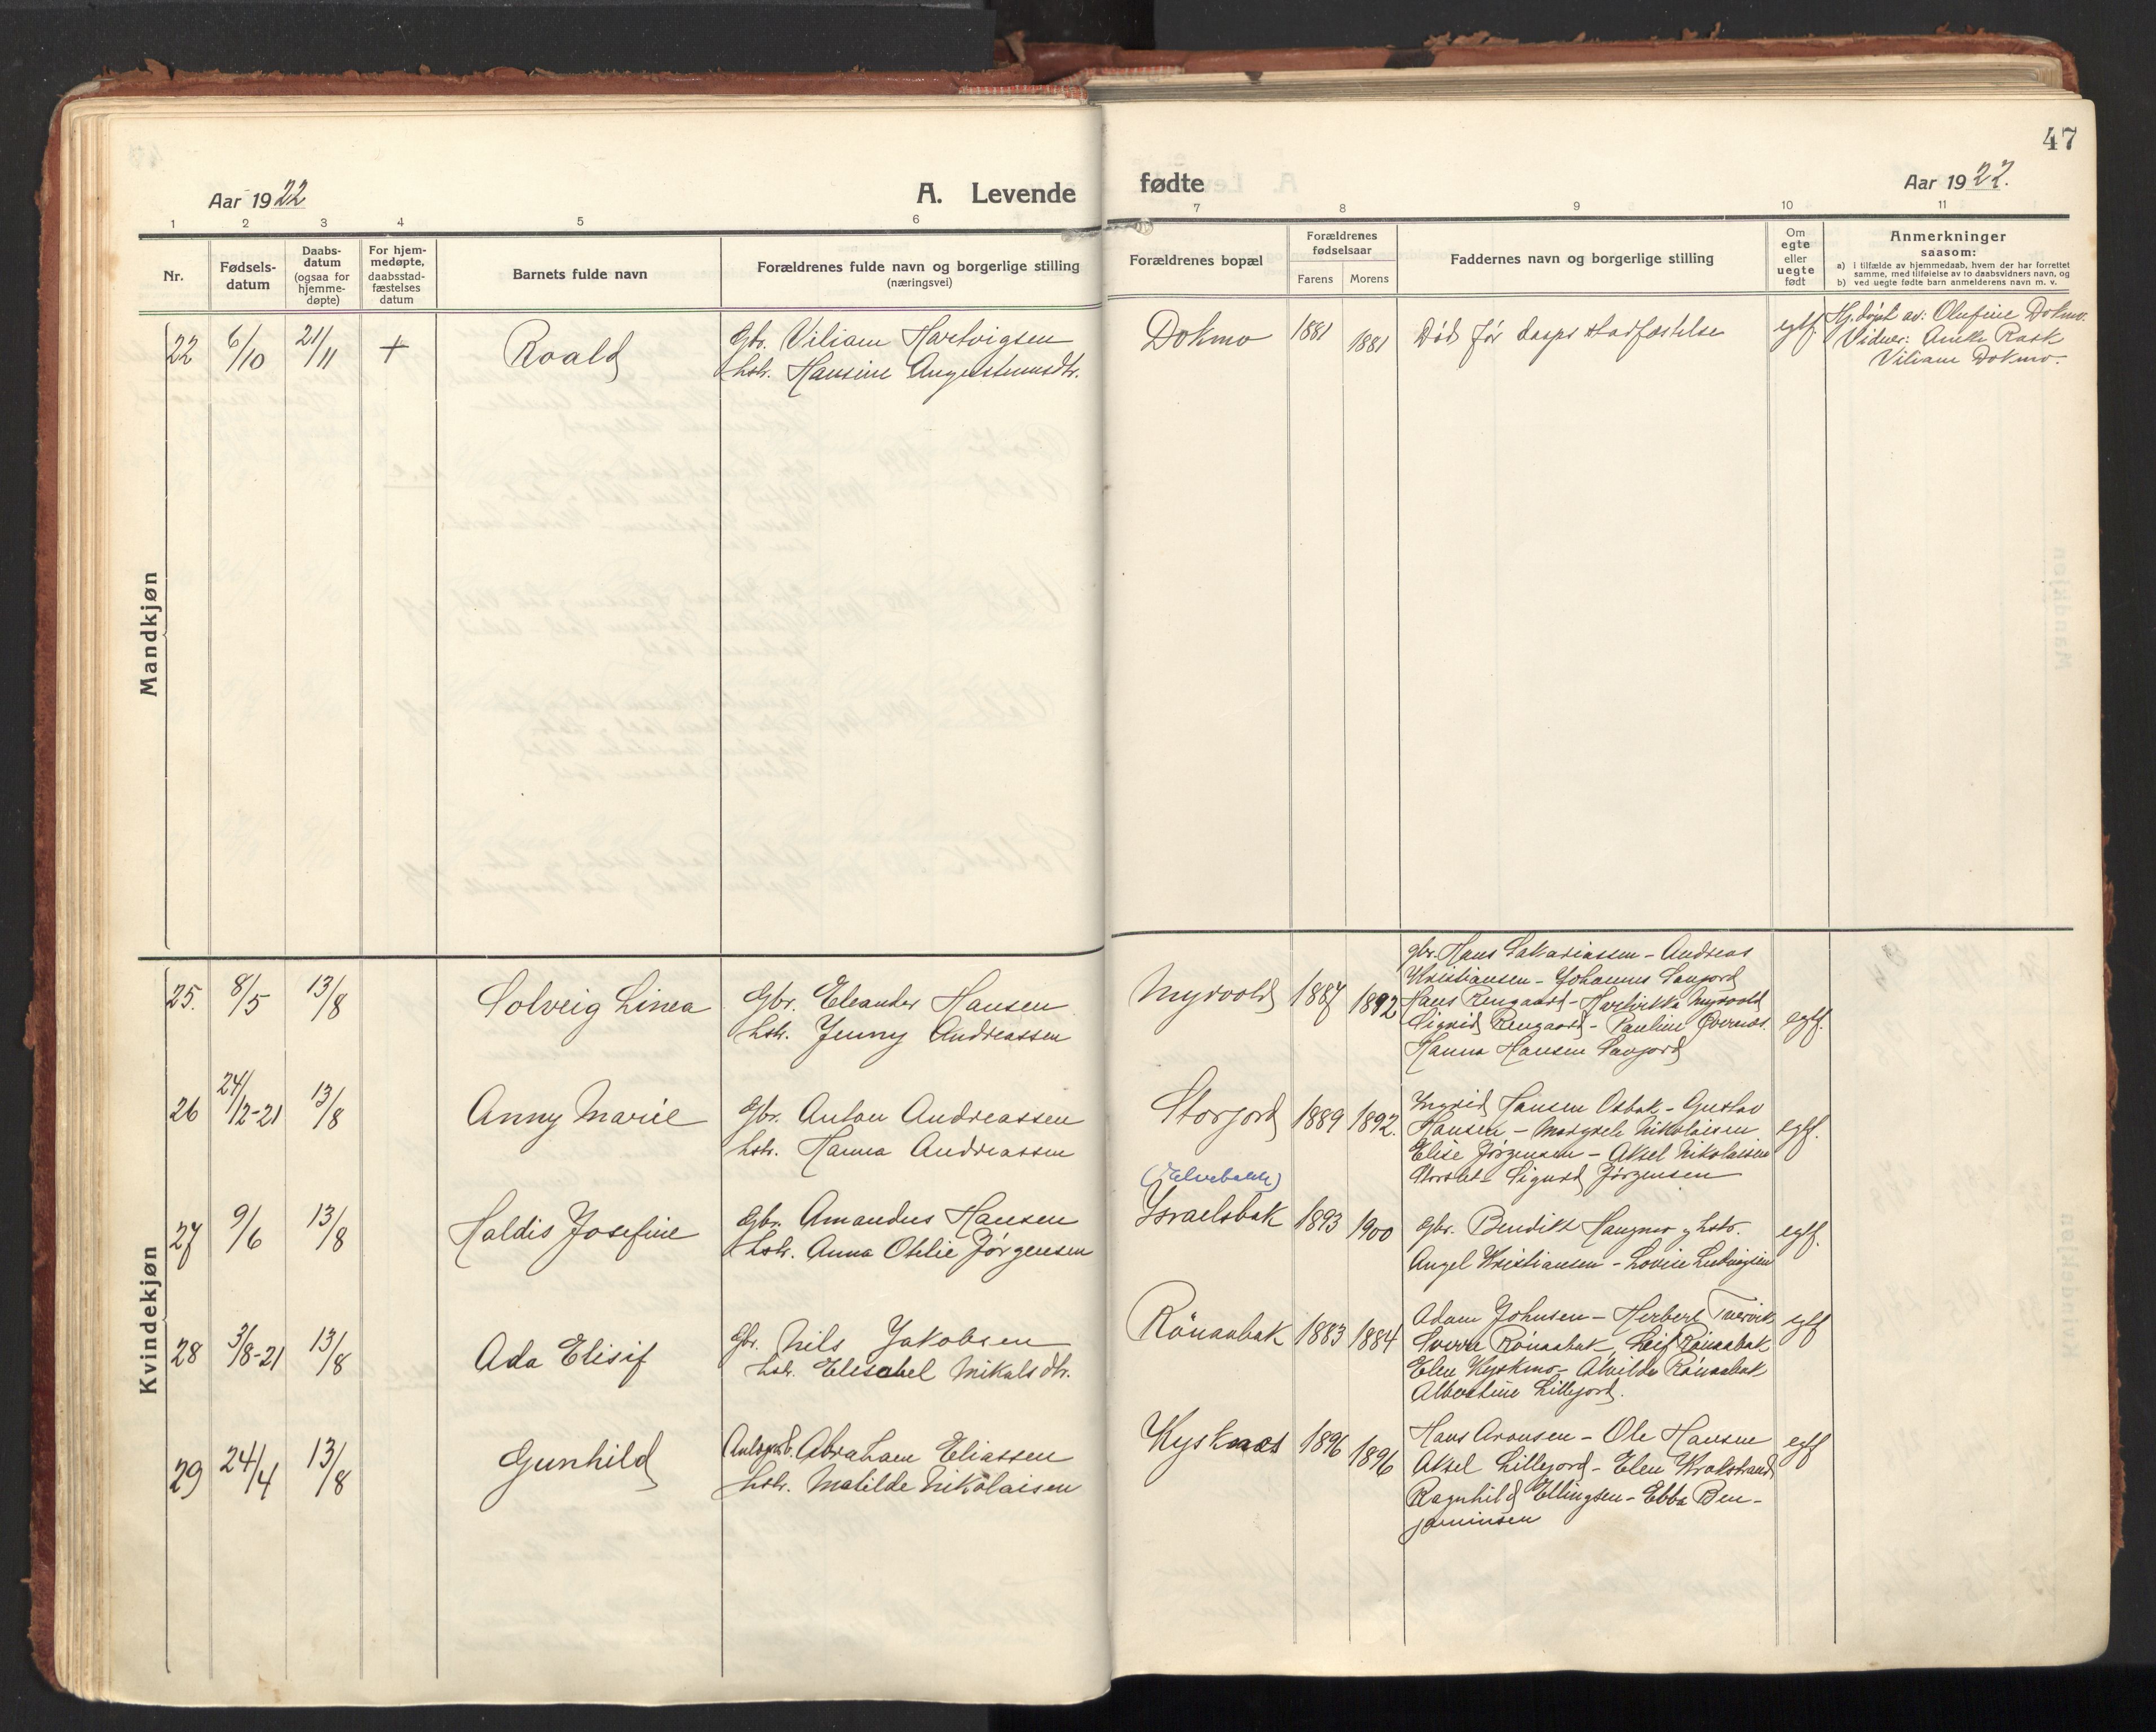 47
Aar 1922
A. Levende fødte
Aar 1922.
1 2 3 4 5 6 7 8 9 10 11
Nr.
Fødsels-
datum
Daabs-
datum
(ogsaa for
hjemme-
døpte)
For hjem-
medøpte,
daabsstad-
fæstelses
datum
Barnets fulde navn
Forældrenes fulde navn og borgerlige stilling
(næringsvei)
Forældrenes bopæl
Forældrenes
fødselsaar
Farens Morens
Faddernes navn og borgerlige stilling
Om
egte
eller
uegte
født
Anmerkninger
saasom:
a) i tilfælde av hjemmedaab, hvem der har forrettet
samme, med tilføielse av to daabsvidners navn, og
b) ved uegte fødte barn anmelderens navn m. v.
Mandkjøn
22 6/10 21/11 + Roald
Gbr. Viliam Hartvigsen
hstr. Hansine Angustinusdtr.
Dokmo 1881 1881
Död för daaps stadfæstelse
egtf.
Hj.döpt av: Olufine Dokmo.
Vidner: Anette Rask
Viliam Dokmo.
Kvindekjøn
25. 8/5 13/8 Solveig Linea
Gbr. Eleander Hansen
hstr. Jenny Andreassen
Myrvold 1887 1892
gbr. Hans Sakariassen - Andreas
Kristiansen - Johannes Saugord
Hans Rengaard - Hartvikka Myrvold
Sigrid Rengaard - Pauline Övernæs.
Hanna Hansen Saugord
egtf.
26 24/12-21 13/8 Anny Marie
Gbr. Anton Andreassen
hstr. Hanna Andreassen
Storjord 1889 1892.
Ingrid Hansen Osbak - Gustav
Hansen - Margrete Nikolaisen
Elise Jörgensen - Aksel Nikolaisen
Sigurd Jörgensen
egtf.
27 9/6 13/8 Haldis Josefine
Gbr. Amandus Hansen
hstr. Anna Otilie Jörgensen
Israelsbak 1893 1900
Gbr. Bendikt Haugmo g hstr.
Angel Kristiansen - Lovise Ludvigsen
egtf.
28 3/8-21 13/8 Ada Elisif
Gbr. Nils Jakobsen
hstr. Elisabel Mikalsdtr.
Rönaabak 1883 1884
Adam Johnsen - Herbert Tvervik
Sverre Rönaabak, Leif Rönaabak
Elen Kyskmo - Alvilda Rönaabak
Albertine Lillejord.
egtf
29 24/4 13/8 Gunhild
Abraham Eliassen
hstr. Matilde Nikolaisen
Kysknæs 1896 1896
Hans Aronsen - Ole Hansen
Aksel Lillejord - Elen Krokstrand
Ragnhild Ellingsen - Ebba Ben-
jaminsen
egtf